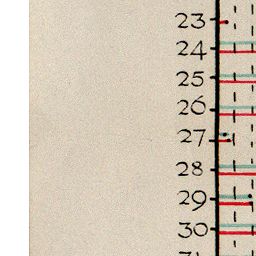 23
24
25
26
27
28
29
30